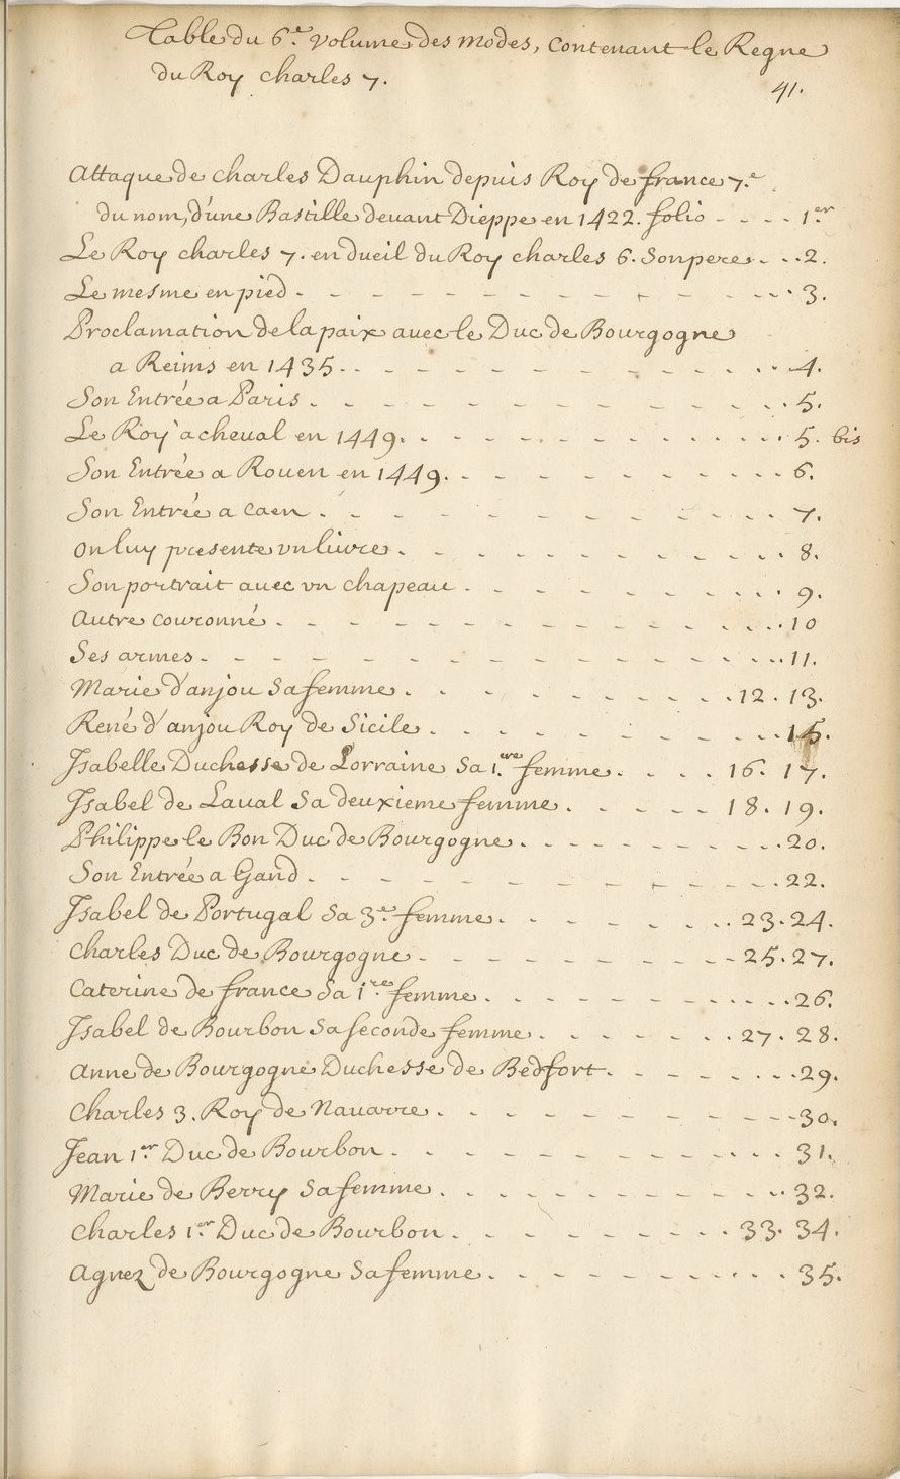 Table du 6.e volume des modes, contenant le Regne
du Roy charles 7.
41.
Attaque de charles Dauphin depuis Roy de france 7.e
du nom, d'une Bastille devant Dieppe en 1422. folio - - - - 1.er
Le Roy charles 7. en dueil du Roy charles 6. Son pere - - - 2.
Le mesme en pied - - - - 3.
Proclamation de la paix avec le Duc de Bourgogne
a Reims en 1435. - - - - 4.
Son Entrée a Paris - - - - 5.
Le Roy a cheval en 1449. - - - - 5. bis
Son Entrée a Rouen en 1449. - - - - 6.
Son Entrée a caen - - - - 7.
on luy presente vn livre - - - - 8.
Son portrait avec vn chapeau - - - - 9.
Autre couronné - - - - 10
Ses armes - - - - 11.
Marie d'anjou Sa femme - - - - 12. 13.
René d'anjou Roy de Sicile - - - - 15.
Isabelle Duchesse de Lorraine Sa 1.ere femme - - - - 16. 17.
Isabel de Laval Sa deuxieme femme - - - - 18. 19.
Philippe le Bon Duc de Bourgogne - - - - 20.
Son Entrée a Gand - - - - 22.
Isabel de Portugal Sa 3.e femme - - - - 23. 24.
Charles Duc de Bourgogne - - - - 25. 27.
Caterine de france Sa 1.re femme - - - - 26.
Isabel de Bourbon Sa seconde femme - - - - 27. 28.
Anne de Bourgogne Duchesse de Bedfort - - - - 29.
Charles 3. Roy de Navarre - - - - 30.
Jean 1.er Duc de Bourbon - - - - 31.
Marie de Berry Sa femme - - - - 32.
Charles 1.er Duc de Bourbon - - - - 33. 34.
Agnez de Bourgogne Sa femme - - - - 35.